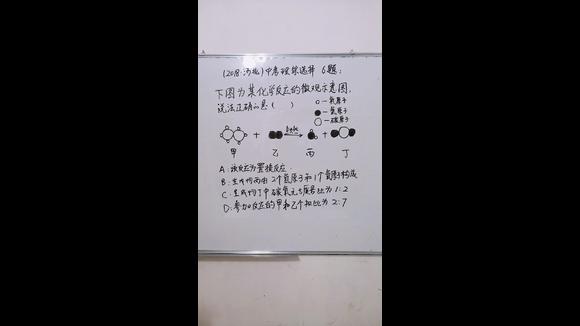 (2018·河北)中考理综选择 6题:
下图为某化学反应的微观示意图,
说法正确的是( )
○—氢原子
●—氧原子
○—碳原子
+ 点燃 +
甲 乙 丙 丁
A:该反应为置换反应.
B:生成物丙由2个氢原子和1个氧原子构成
C:生成物丁中碳氧元素质量比为1:2
D:参加反应的甲和乙个数比为2:7